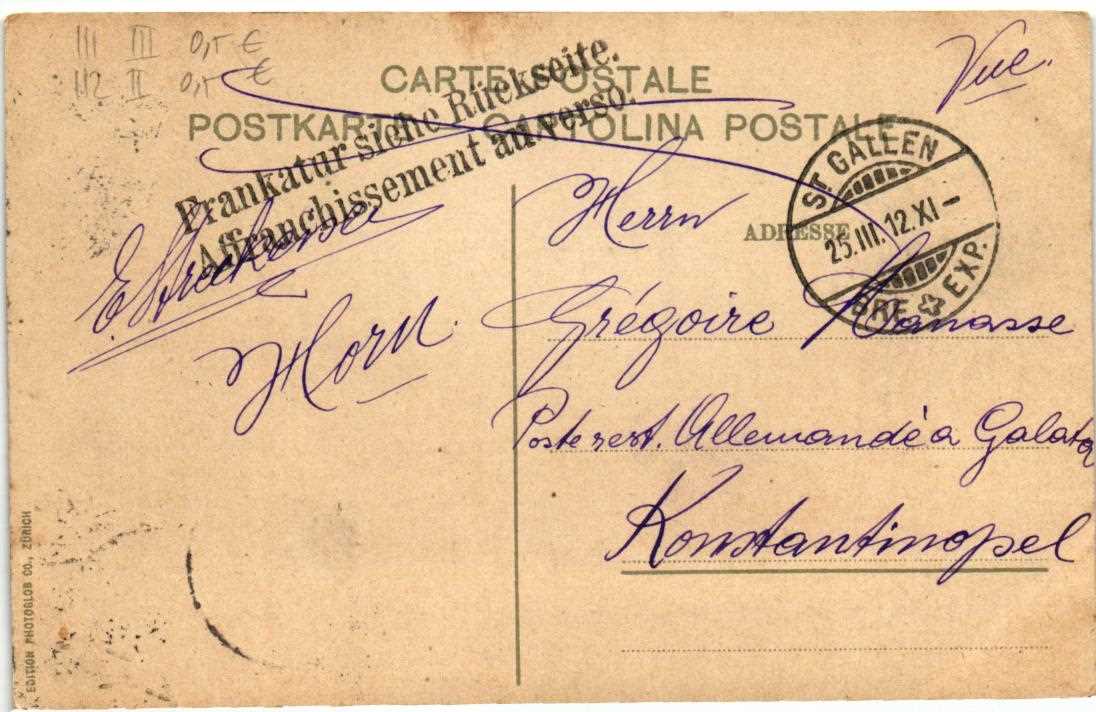 III III 0,5 €
112 II 0,5 €
CARTE POSTALE
POSTKARTE CARTOLINA POSTALE
Vue.
Frankatur siehe Rückseite.
Affranchissement au verso.
ST. GALLEN
25.III.12.XI-
BRF. EXP.
ADRESSE
Horn.
Herrn
Grégoire Manasse
Poste rest. Allemande à Galata
Konstantinopel
EDITION PHOTOGLOB CO., ZÜRICH